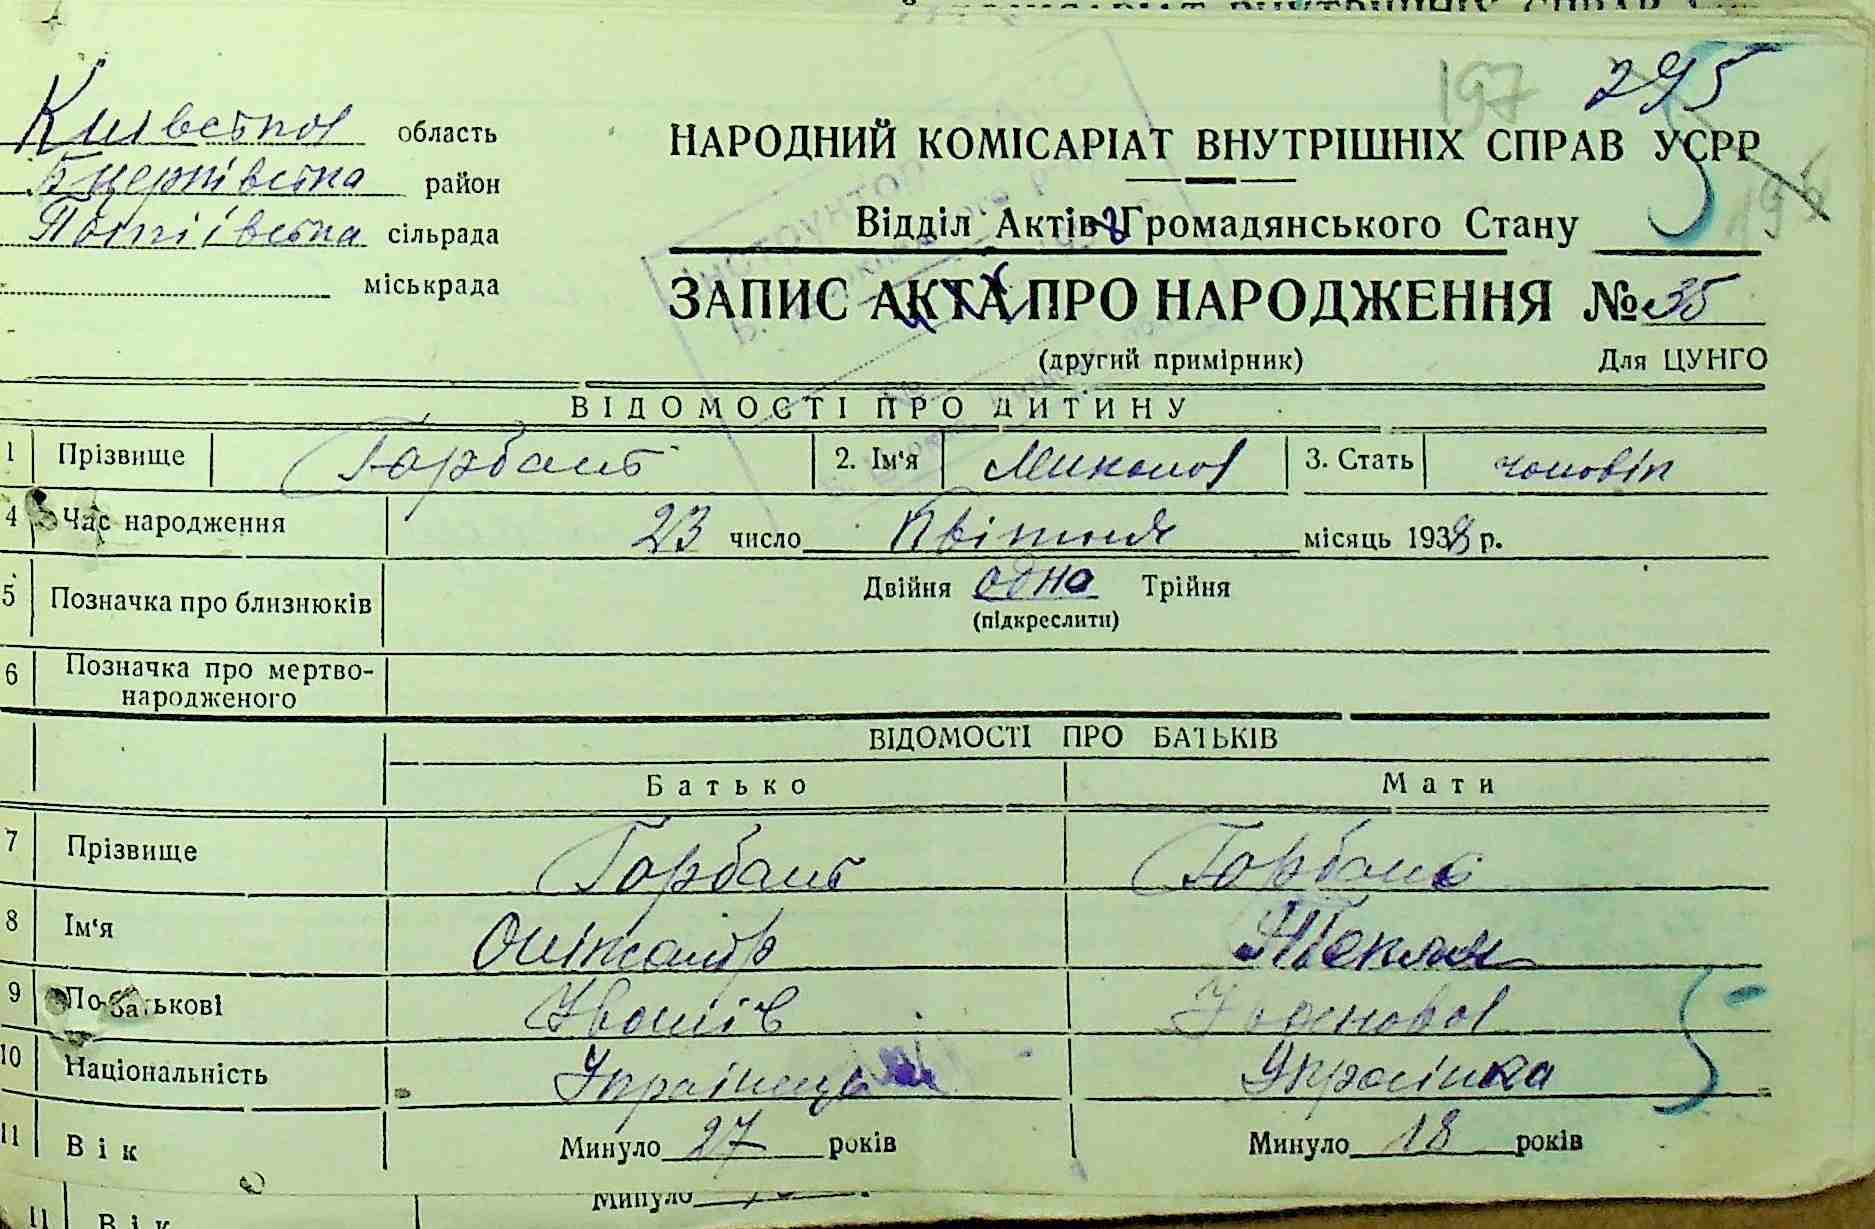 197 295
Київська область
Бцерківська район
сільрада
міськрада
НАРОДНИЙ КОМІСАРІАТ ВНУТРІШНІХ СПРАВ УСРР
196
Відділ Актів Громадянського Стану
ЗАПИС АКТА ПРО НАРОДЖЕННЯ № 35
(другий примірник) Для ЦУНГО
ВІДОМОСТІ ПРО ДИТИНУ
1 Прізвище Горбань 2. Ім'я Микола 3. Стать чоловік
4 Час народження 23 число Квітня місяць 1938 р.
5 Позначка про близнюків Двійня одна Трійня
(підкреслити)
6 Позначка про мертво-
народженого
ВІДОМОСТІ ПРО БАТЬКІВ
Батько Мати
7 Прізвище Горбань Горбань
8 Ім'я Текля
9 По-батькові Іванів
10 Національність Українець Українка
11 Вік Минуло 27 років Минуло 18 років
5
Минуло
11 Вік